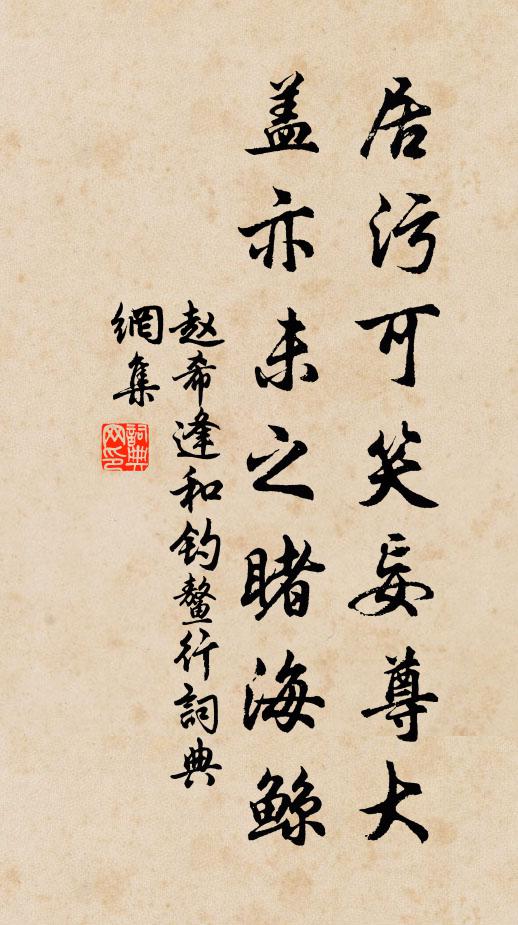 居污可笑妄尊大
盖亦未之睹海鲸
赵希逢和钓鳌行詞典
網集
詞典
网印